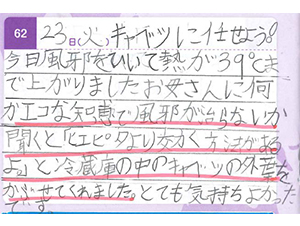 62
23日(火)キャベツに任せよう!
今日風邪をひいて熱が39℃ま
で上がりましたお母さんに何
かエコな知恵で風邪が治らないか
聞くと「ビエピタより
よ」と冷蔵庫の中のキャベツの外葉を
かぶせてくれました。とても気持ちよかった
です。